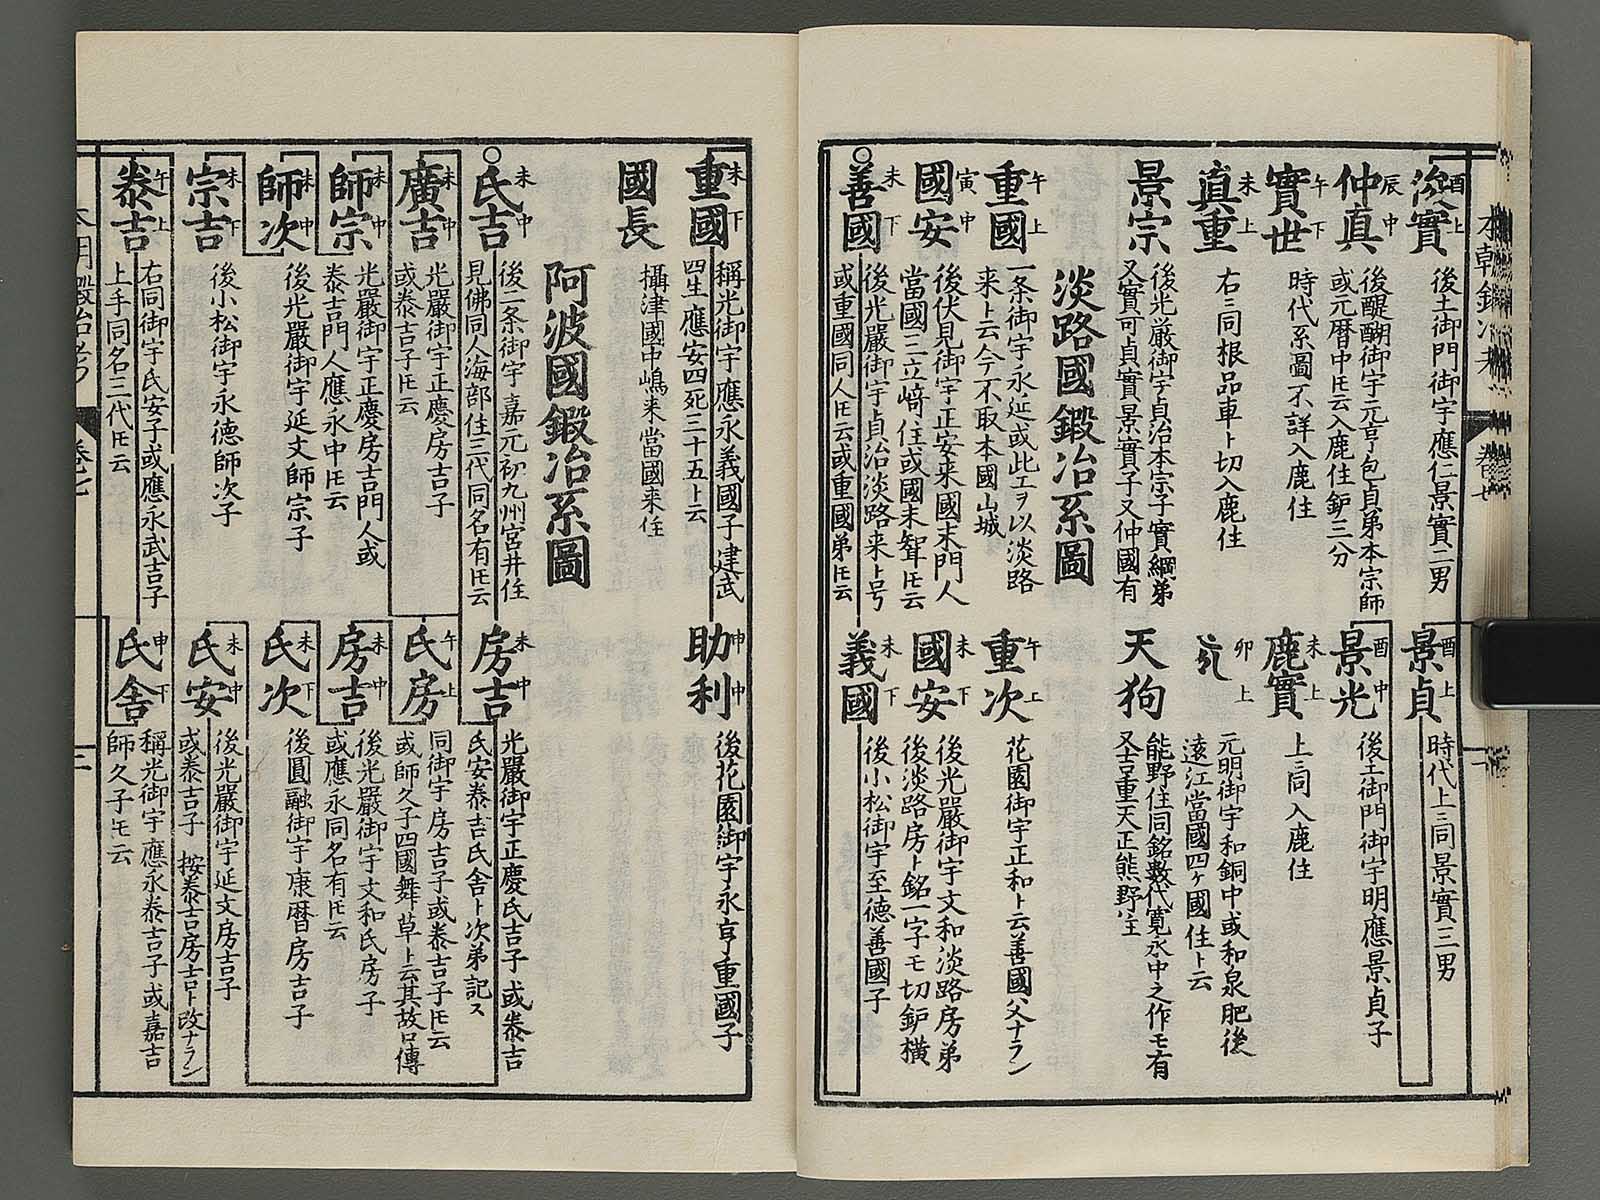 本朝鍛冶考 卷七
後實 酉上
後土御門御宇應仁景實二男
景貞 酉上
時代上ニ同景實三男
仲真 辰中
後醍醐御宇元亨包貞弟本宗師
或元暦中㐧云入鹿住鈩三分
景光 酉中
後土御門御宇明應景貞子
實世 午下
時代系圖不詳入鹿住
鹿實 未上
上ニ同入鹿住
真重 未上
右ニ同根品車ト切入鹿住
卯上
元明御宇和銅中或和泉肥後
遠江當國四ケ國住ト云
景宗
後光厳御宇貞治本宗子實綱弟
又實可貞實景實子又仲國有
天狗
能野住同銘數代寛永中之作モ有
又吉重天正熊野住
淡路國鍛冶系圖
重國 午上
一条御宇永延或此工ヲ以淡路
来ト云今不取本國山城
重次 午上
花園御宇正和ト云善國父ナラン
國安 寅中
後伏見御宇正安来國末門人
當國三立﨑住或國末聟㐧云
國安 未下
後光嚴御宇文和淡路房弟
後淡路房ト銘一字モ切鈩横
善國 未下
後光嚴御宇貞治淡路来ト号
或重國同人㐧云或重國弟㐧云
義國 未下
後小松御宇至徳善國子
重國 未下
稱光御宇應永義國子建武
四生應安四死三十五ト云
助利 申中
後花園御宇永享重國子
國長
攝津國中嶋来當國来住
阿波國鍛冶系圖
氏吉 未中
後二条御宇嘉元初九州宮井住
見佛同人海部住三代同名有㐧云
房吉 未中
光嚴御宇正慶氏吉子或泰吉
氏安泰吉氏舍ト次弟記ス
廣吉 未中
光嚴御宇正慶房吉子
或泰吉子㐧云
氏房 午上
同御宇房吉子或泰吉子㐧云
或師久子四國舞草ト云其故口傳
師宗 未中
光嚴御宇正慶房吉門人或
泰吉門人應永中㐧云
房吉 未中
後光嚴御宇文和氏房子
或應永同名有㐧云
師次 未中
後光嚴御宇延文師宗子
氏次 未下
後圓融御宇康暦房吉子
宗吉 未下
後小松御宇永徳師次子
氏安 未中
後光嚴御宇延文房吉子
或泰吉子 按泰吉房吉ト改ナラン
泰吉 午上
右同御宇氏安子或應永武吉子
上手同名三代㐧云
氏舍 申下
稱光御宇應永泰吉子或嘉吉
師久子㐧云
本朝鍛冶考 卷七 二